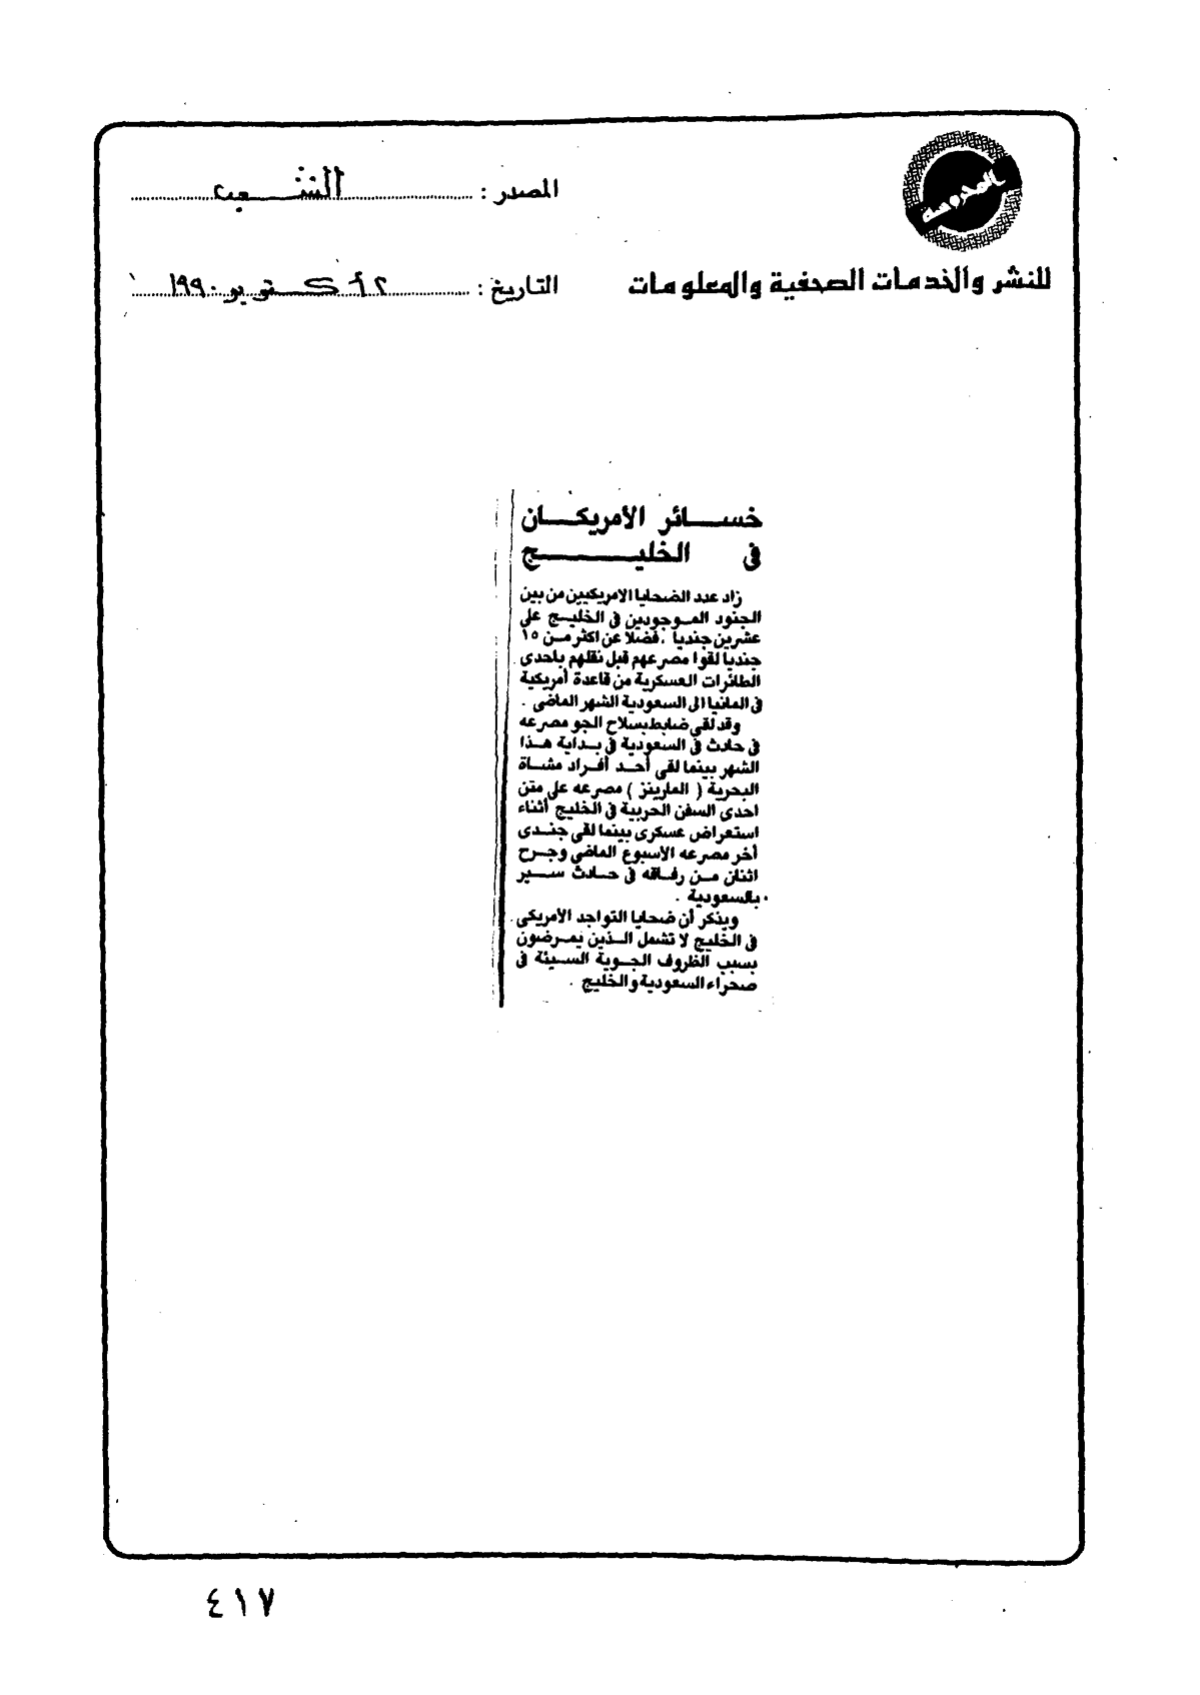 المحروسة
المصدر : الشعب
للنشر والخدمات الصحفية والمعلومات
التاريخ : ٢ أكتوبر ١٩٩٠
خسائر الأمريكان
فى الخليج
زاد عدد الضحايا الامريكيين من بين
الجنود الموجودين فى الخليج على
عشرين جنديا ، فضلا عن اكثر من ١٥
جنديا لقوا مصرعهم قبل نقلهم باحدى
الطائرات العسكرية من قاعدة أمريكية
فى المانيا الى السعودية الشهر الماضى .
وقد لقى ضابط بسلاح الجو مصرعه
فى حادث فى السعودية فى بداية هذا
الشهر بينما لقى أحد أفراد مشاة
البحرية ( المارينز ) مصرعه على متن
احدى السفن الحربية فى الخليج أثناء
استعراض عسكرى بينما لقى جندى
أخر مصرعه الأسبوع الماضى وجرح
اثنان من رفاقه فى حادث سير
بالسعودية .
ويذكر أن ضحايا التواجد الأمريكى
فى الخليج لا تشمل الذين يمرضون
بسبب الظروف الجوية السيئة فى
صحراء السعودية والخليج .
٤١٧